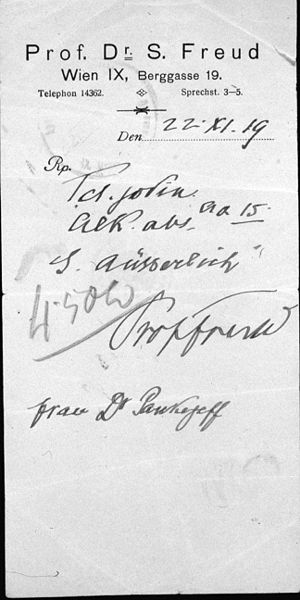 Prof. Dr. S. Freud
Wien IX, Berggasse 19.
Telephon 14362. Sprechst. 3–5.
Den 22·XI.19
Rp.
Tct. jodin.
Alk. abs. aa 15.
S. äusserlich
Prof Freud
Frau Dr Pankejeff